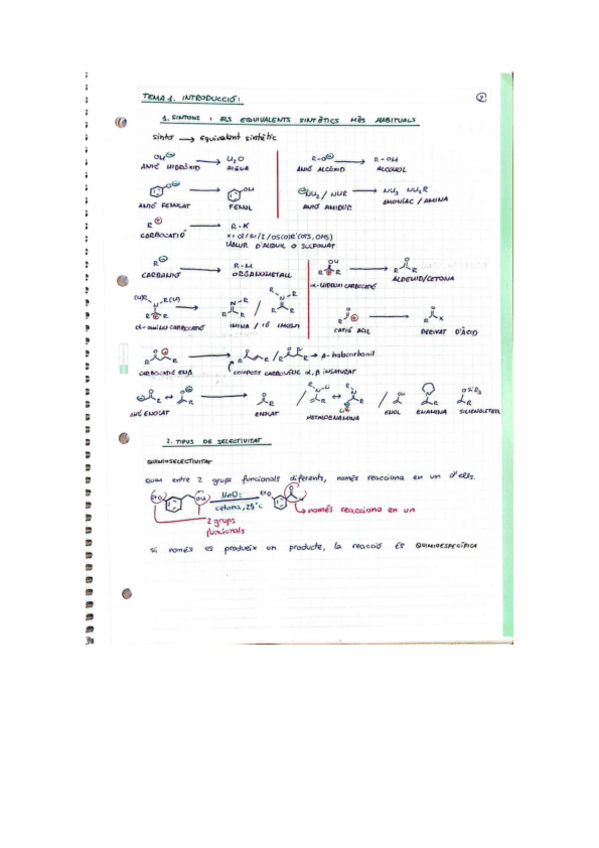 TEMA 1. INTRODUCCIÓ:
1. SINTONS I ELS EQUIVALENTS SINTÈTICS MÉS HABITUALS
sintó → equivalent sintètic
OH⊖ → H2O R-O⊖ → R-OH
ANIÓ HIDRÒXID AIGUA ANIÓ ALCÒXID ALCOHOL
O⊖ → OH ⊖NH2 / NHR → NH3 NH2R
ANIÓ FENOLAT FENOL ANIÓ AMIDUR AMONÍAC / AMINA
R⊕ → R-X
CARBOCATIÓ X = Cl/Br/I/OS(O)R'(OTS, OMS)
HALUR D'ALQUIL O SULFONAT
R⊖ → R-M OH R ⊕ R → O R R
CARBANIÓ ORGANOMETALL α-HIDROXI CARBOCATIÓ ALDEHID/CETONA
(H)R N R(H) R ⊕ R → N R R R / R ⊕ N R R R O R ⊕ → O R X
α-AMINO CARBOCATIÓ IMINA / IÓ IMONI CATIÓ ACIL DERIVAT D'ÀCID
CARBOCATIÓ ENA compost CARBONÍLIC α,β INSATURAT
ANIÓ ENOLAT ENOLAT METALOENAMINA ENOL ENAMINA SILILENOLETER
2. TIPUS DE SELECTIVITAT
QUIMIOSELECTIVITAT
quan entre 2 grups funcionals diferents, només reacciona en un d'ells.
HO OH MnO2 HO O H
cetona, 25°C → només reacciona en un
2 grups
funcionals
si només es produeix un producte, la reacció és QUIMIOESPECÍFICA